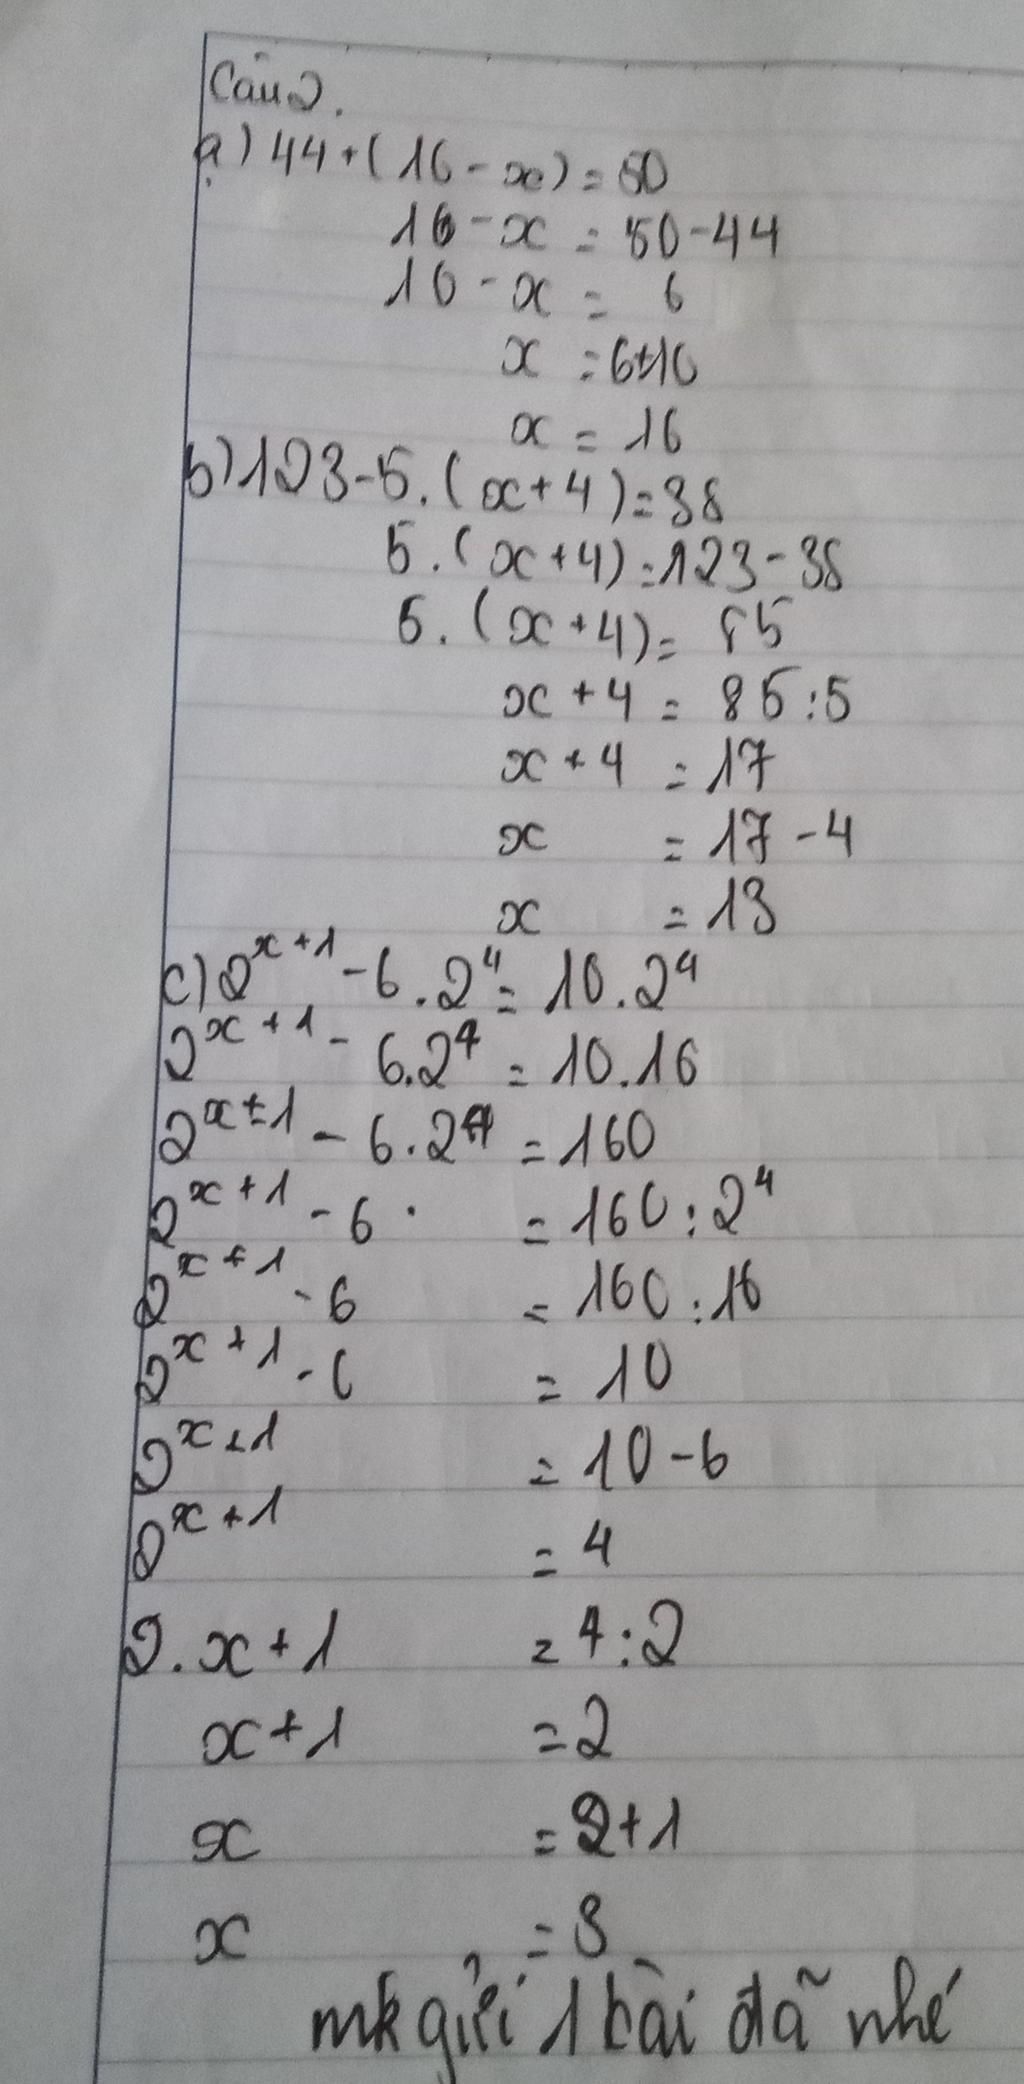 Câu 2.
a) 44 + (16 - x) = 50
16 - x = 50 - 44
10 - x = 6
x = 6+10
x = 16
b) 123 - 5 . (x + 4) = 38
5 . (x + 4) = 123 - 38
5 . (x + 4) = 85
x + 4 = 85 : 5
x + 4 = 17
x = 17 - 4
x = 13
c) 2^{x+1} - 6 . 2^4 = 10 . 2^4
2^{x+1} - 6 . 2^4 = 10 . 16
2^{x+1} - 6 . 2^4 = 160
2^{x+1} - 6 . = 160 : 2^4
2^{x+1} - 6 = 160 : 16
2^{x+1} - 6 = 10
2^{x+1} = 10 - 6
2^{x+1} = 4
2 . x + 1 = 4 : 2
x + 1 = 2
x = 2 + 1
x = 3
mk gửi 1 bài đã nhé